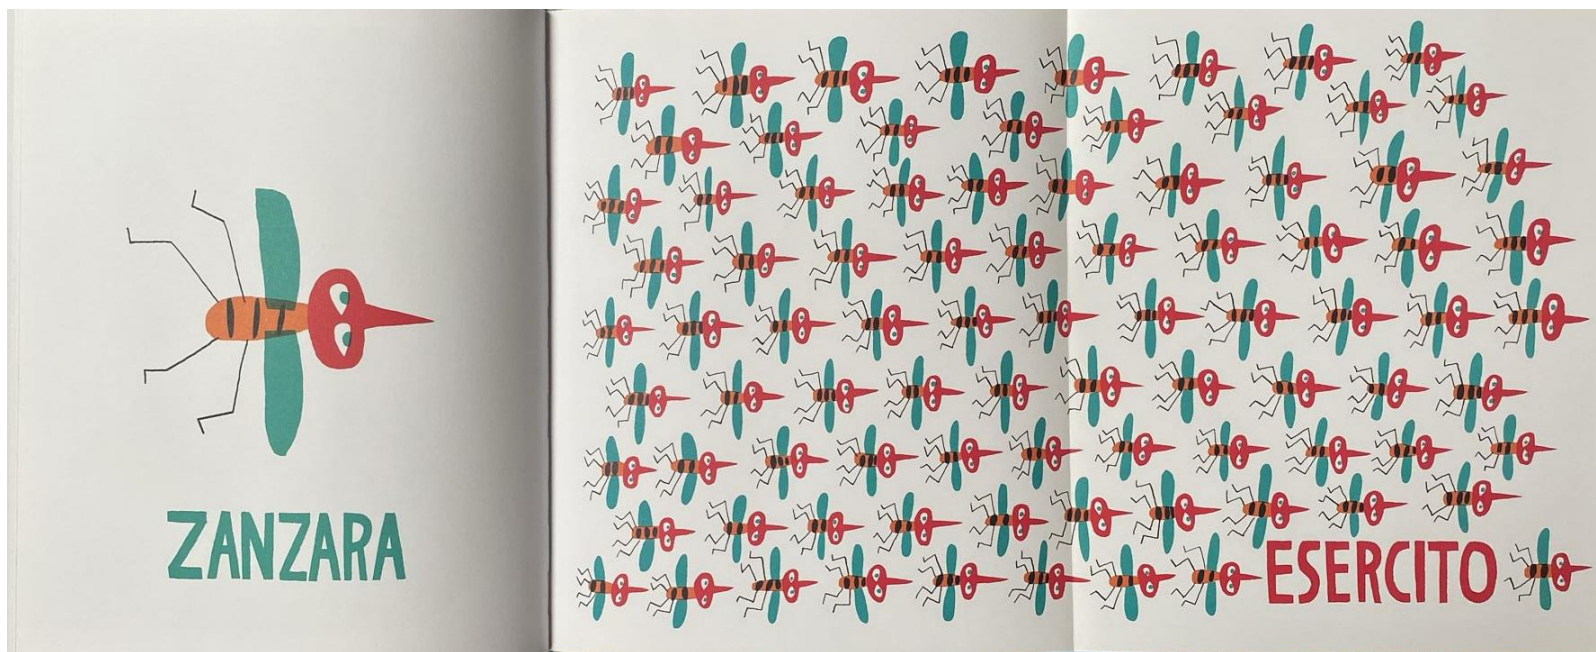 ZANZARA
ESERCITO